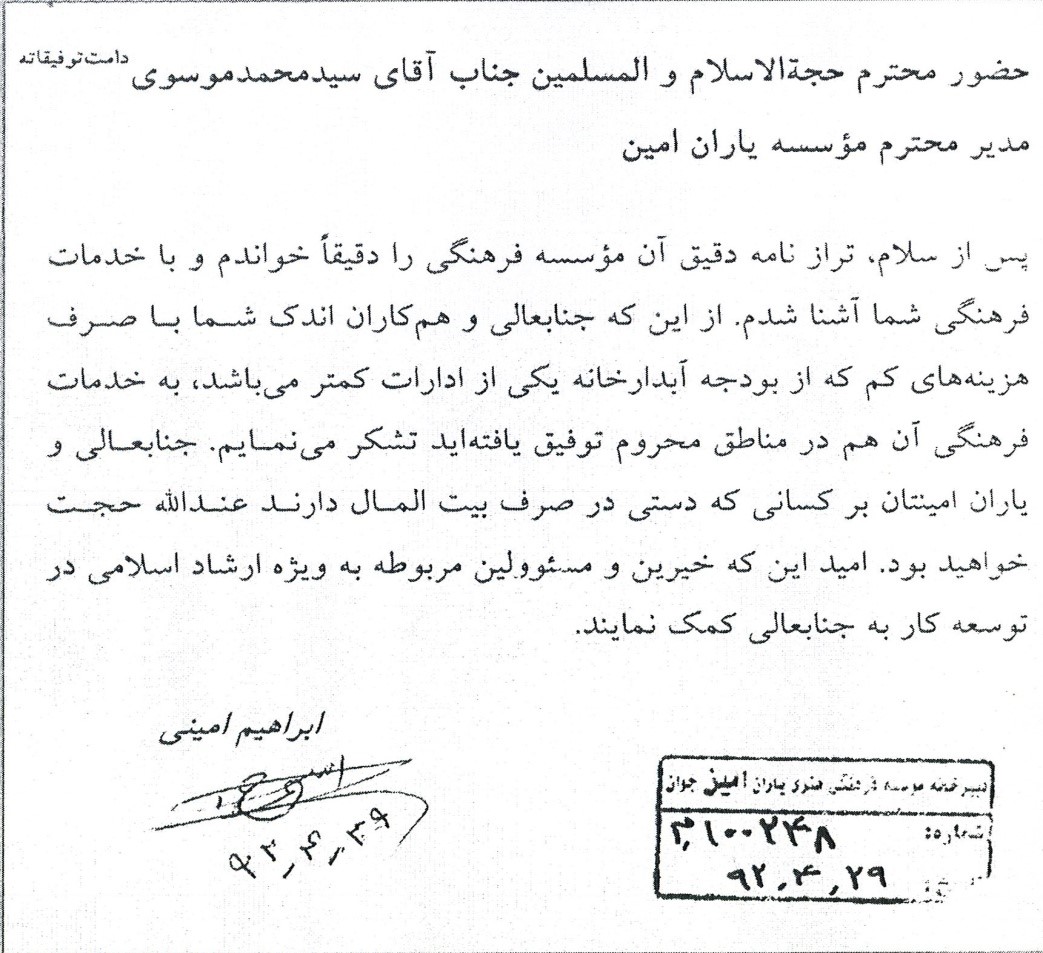 حضور محترم حجةالاسلام و المسلمین جناب آقای سیدمحمدموسوی دامت‌توفیقاته
مدیر محترم مؤسسه یاران امین
پس از سلام، تراز نامه دقیق آن مؤسسه فرهنگی را دقیقاً خواندم و با خدمات
فرهنگی شما آشنا شدم. از این که جنابعالی و هم‌کاران اندک شما با صرف
هزینه‌های کم که از بودجه آبدارخانه یکی از ادارات کمتر می‌باشد، به خدمات
فرهنگی آن هم در مناطق محروم توفیق یافته‌اید تشکر می‌نمایم. جنابعالی و
یاران امینتان بر کسانی که دستی در صرف بیت المال دارند عندالله حجت
خواهید بود. امید این که خیرین و مسئوولین مربوطه به ویژه ارشاد اسلامی در
توسعه کار به جنابعالی کمک نمایند.
ابراهیم امینی
دبیرخانه موسسه فرهنگی هنری یاران امین جوان
شماره: ۱۰۰۲۴۸
تاریخ: ۹۲,۴,۲۹